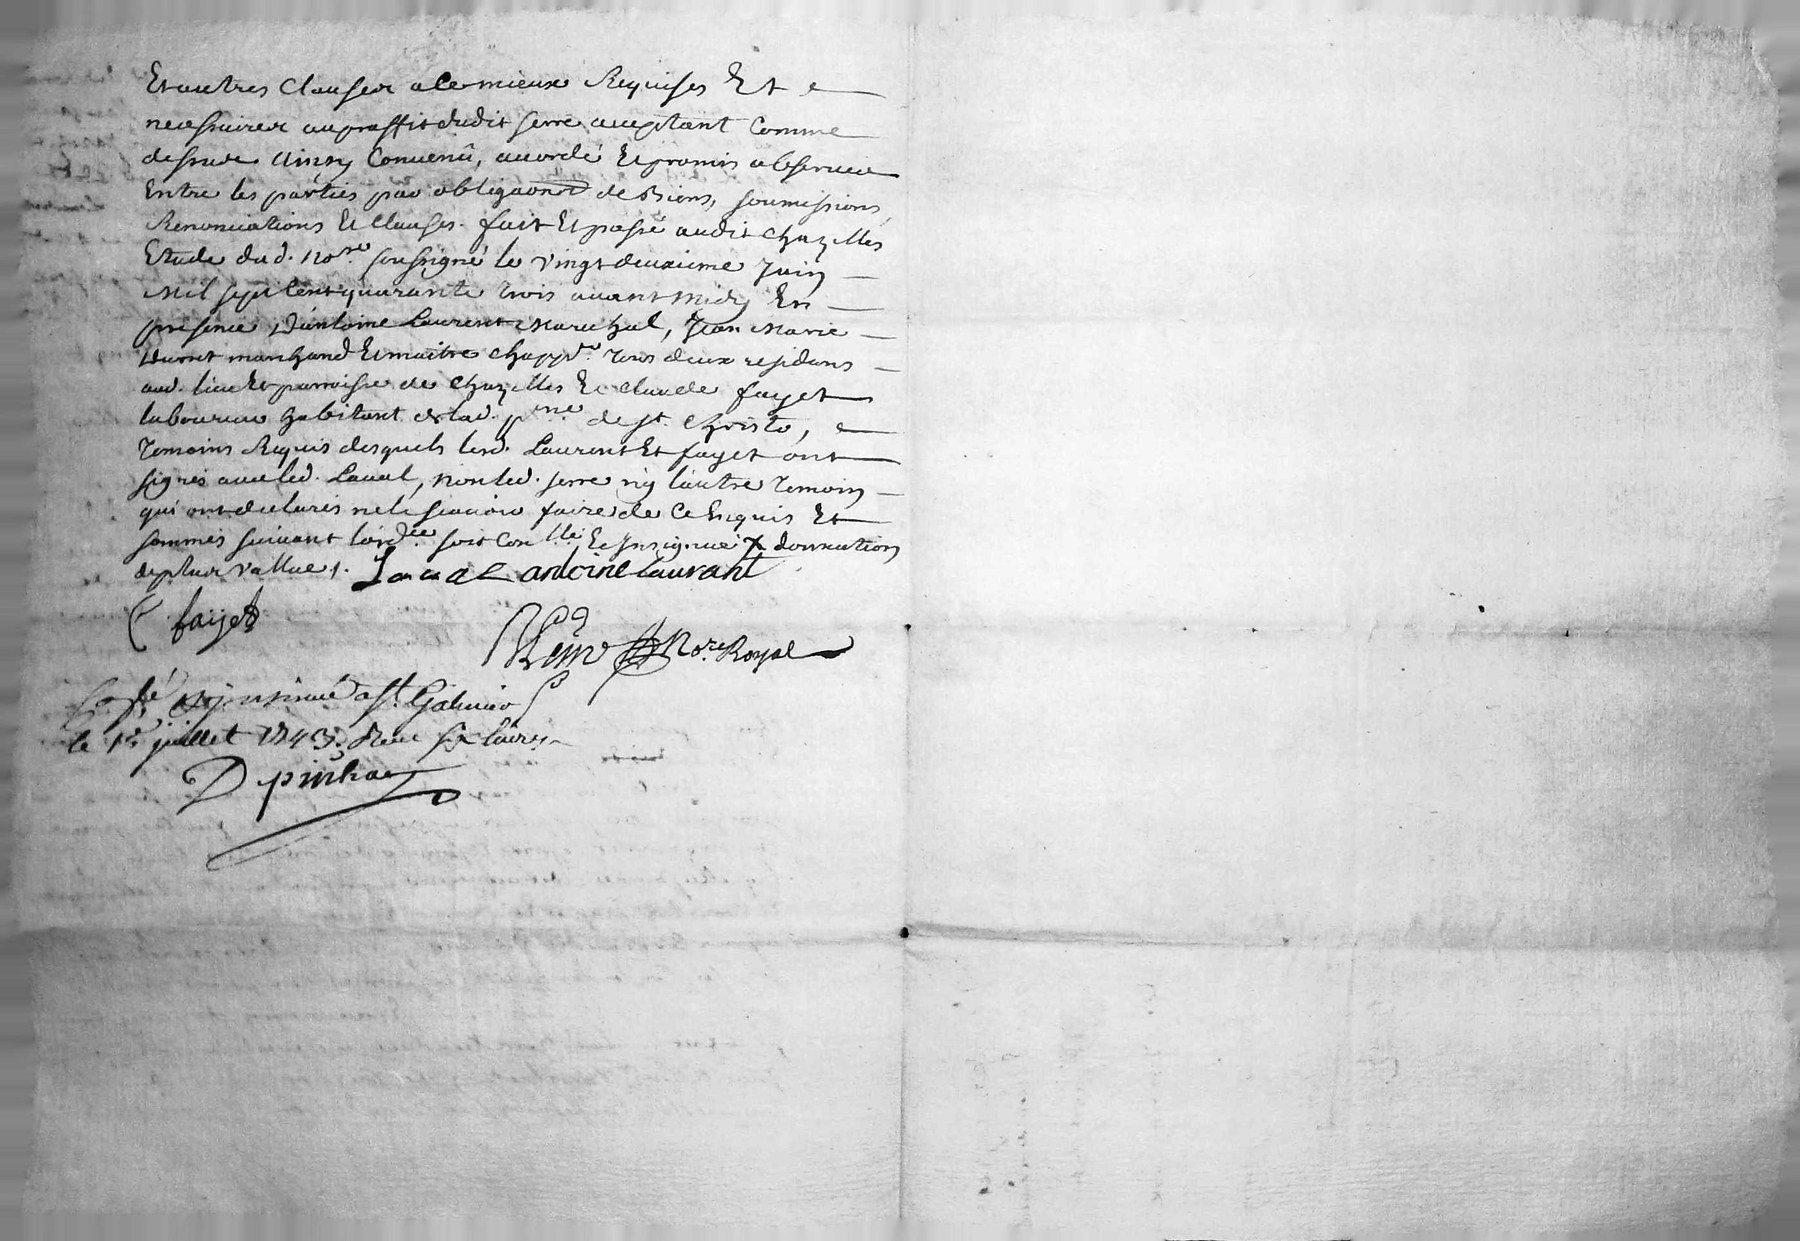 Et autres Clauses a Ce mieux Requises Et
necessaires au proffit dudit serre acceptant Comme
dessus Ainsy Convenû, accordé Et promis observer
Entre les parties par obligaons de Biens, soumissions
Renonciations Et Clauses. fait Et passé audit chazelles
Etude dud. no.re soussigné le vingt deuxieme Juin
Mil sept Cent quarante trois avant midy En
presence D'antoine Laurent Marechal, Jean Marie
marchand Et maitre chapp.r tous deux residans
aud. lieu Et parroisse de chazelles Et claude fayet
laboureur habitant de lad. p.sse de st. christo,
Temoins Requis desquels lesd. Laurent Et fayet ont
signés avec led. Laval, non led. serre ny l'autre Temoin
qui ont declarés ne le scavoir faire de Ce Enquis Et
sommés suivant l'ord.ce soit Con.llé Et Insignué donnation
de plus vallue ./.
Laval antoine laurant
C fayet
No.re Royal
Con.llé Et insinué a st. Galmier
le 1er juillet 1743. Receu six livres
Depinhac